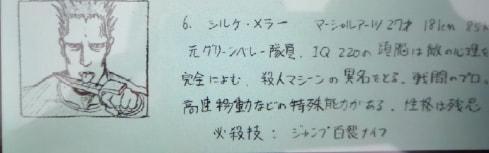 6. シルケ・メラー マーシャルアーツ 27才 181cm 85k
元グリーンベレー隊員、IQ 220の頭脳は敵の心理を
完全によむ、殺人マシーンの異名をとる。戦闘のプロ。
高速移動などの特殊能力がある。性格は残忍
必殺技: ジャンプ百裂ナイフ